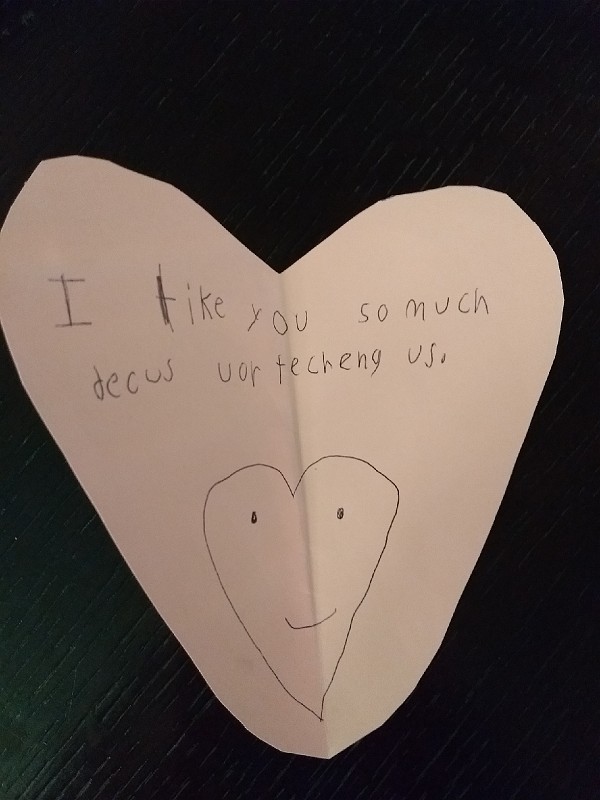 I like you so much
decus uor techeng us.